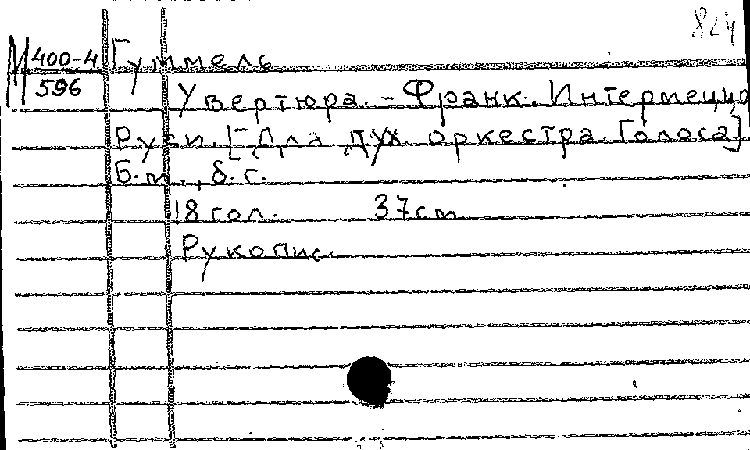 824
М 400-4 Гуммель
596
Увертюра. - Франк. Интермецио
Руси. [Для дух оркестра. Голоса]
Б.м., б.г.
18 гол. 37cm
Рукопис.